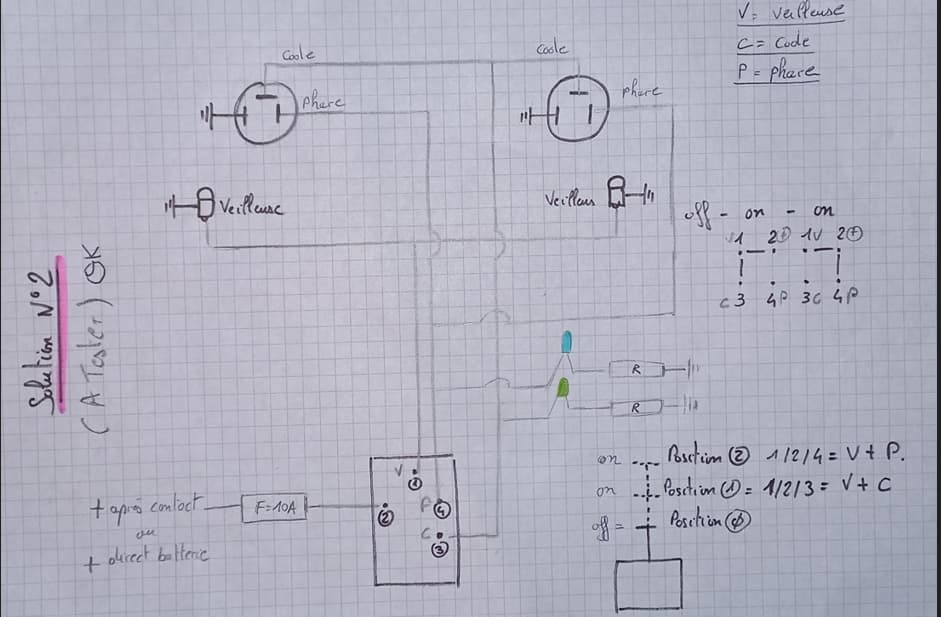 V= veilleuse
C= Code
P= phare
Code
Code
phare
phare
Veilleuse
Veilleus
off - on - on
1 2⊕ 1V 2⊕
C 3 4P 3C 4P
Solution N°2
(A Tester) OK
R
R
V
①
②
P④
C
③
+ après contact
F=10A
ou
+ direct batterie
on Position ② 1/2/4 = V + P.
on Position ① = 1/2/3 = V + C
off = Position ⓪